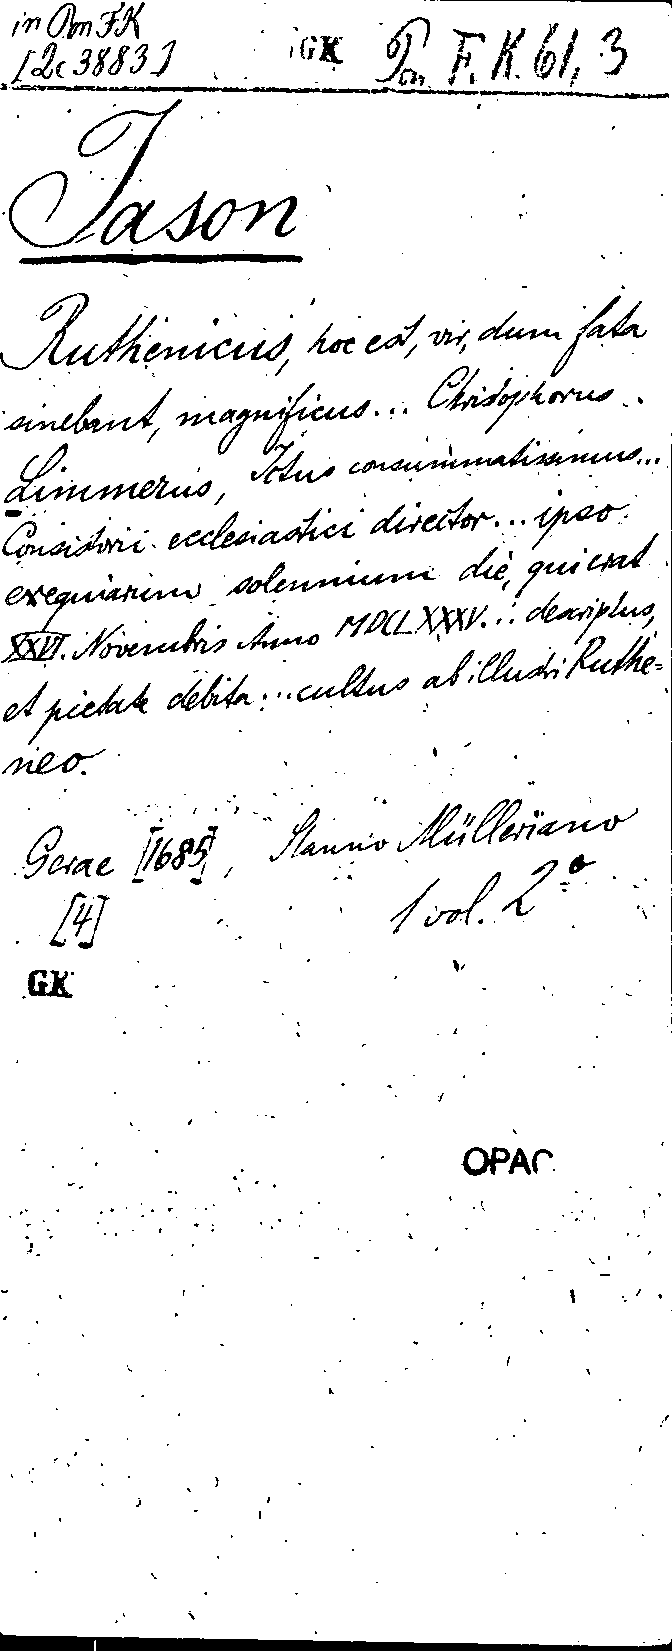 in Pon FK
[2c 3883]
GK Pon F. K. 61, 3
Jason
Ruthenicus, hoc est, vir, dum fata
sinebant, magnificus... Christophorus
Limmerus, Ictus consummatissimus...
Consistorii ecclesiastici director... ipso
exequiarum solennium die, qui erat
XXVI. Novembris Anno MDCLXXXV... descriptus,
et pietate debita... cultus ab illustri Ruthe=
neo.
Gerae [1685], Stanno Mülleriano
[4] 1 vol. 2°
GK
OPAC